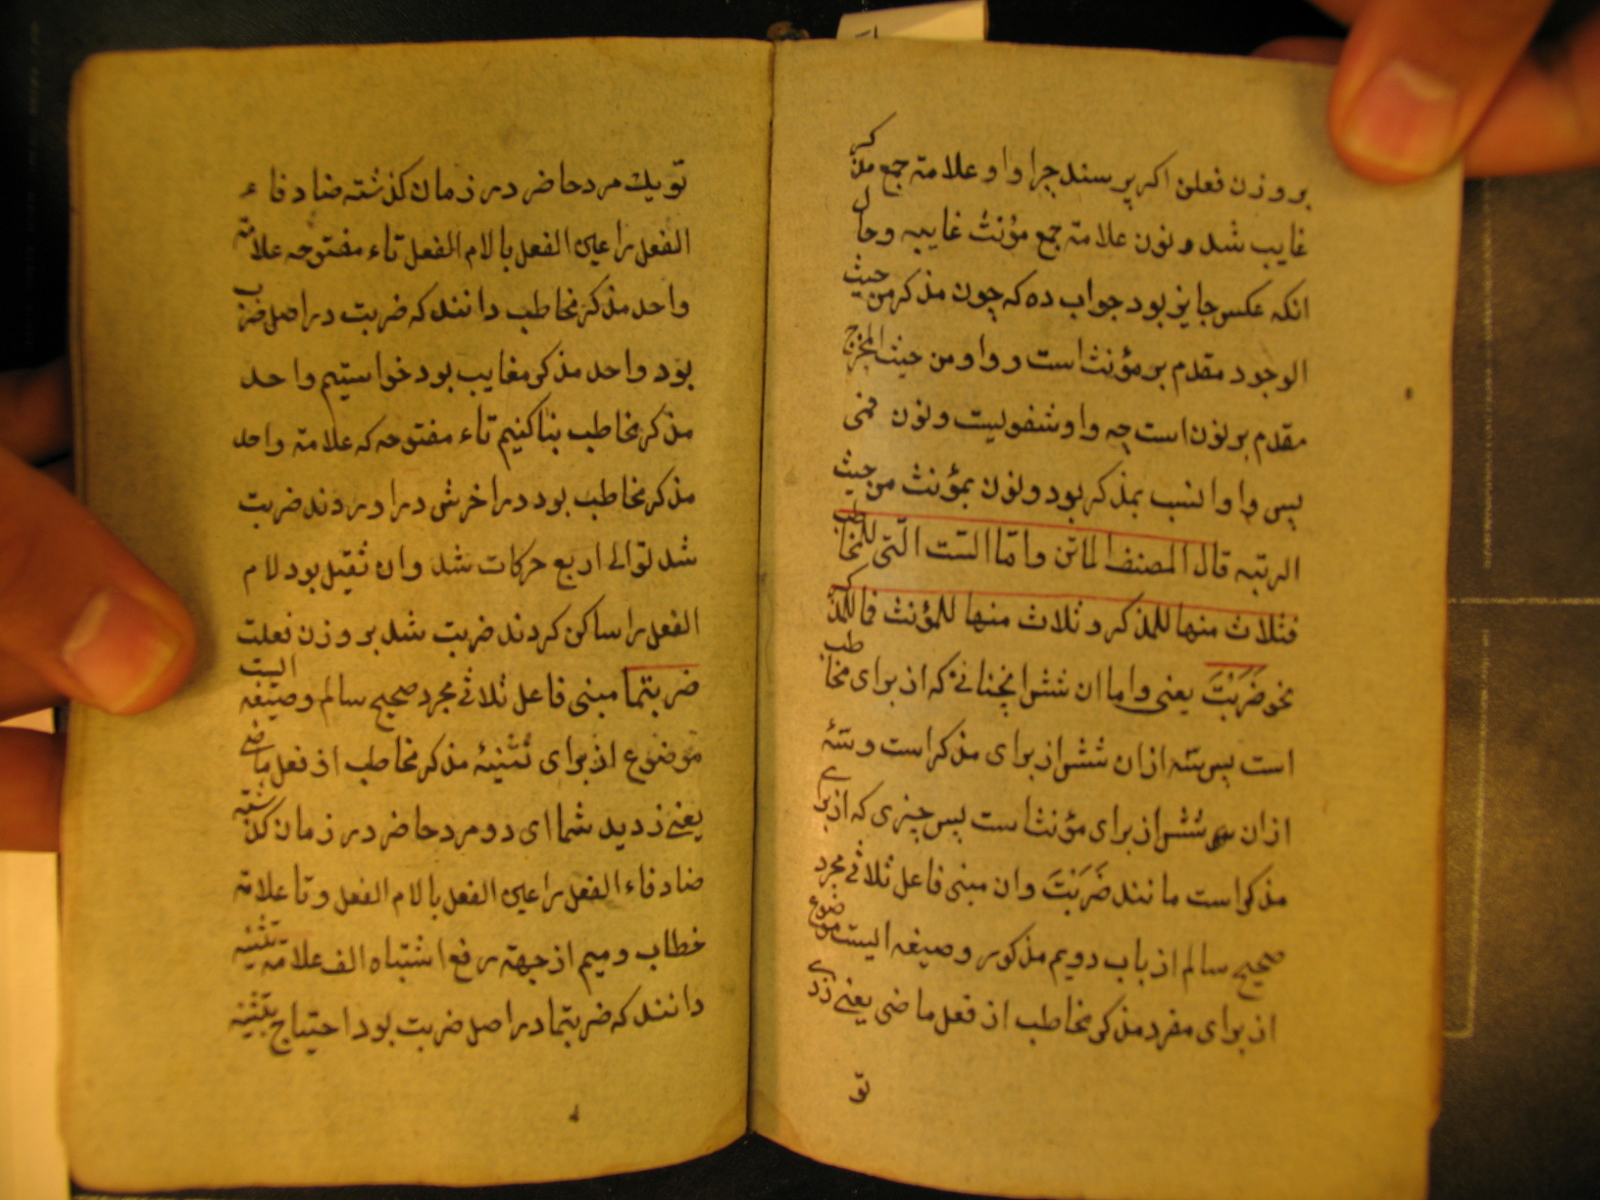 بر وزن فعلن اکر پرسند چرا واو علامة جمع مذکر
غایب شد و نون علامة جمع مؤنث غایبه وحال
انکه عکس جایز بود جواب ده که چون مذکر من حیث
الوجود مقدم بر مؤنث است و واو من حیث المخرج
مقدم بر نون است چه واو شفویست و نون فمی
پس واو انسب بمذکر بود و نون بمؤنث من حیث
الرتبه قال المصنف الماتن واما الست التی للمخاطب
فثلاث منها للمذکر و ثلاث منها للمؤنث فما للمذکر
نحو ضَرَبْتَ یعنی واما ان شش انچنانی که از برای مخاطب
است پس سه ازان شش از برای مذکر است و سه
ازان شش از برای مؤنث است پس چیزی که از برای
مذکر است مانند ضَرَبْتَ وان مبنی فاعل ثلاثی مجرد
صحیح سالم از باب دویم مذکور و صیغه ایست موضوع
از برای مفرد مذکر مخاطب از فعل ماضی یعنی زدی
تو
تو یك مرد حاضر در زمان کذشته ضاد فاء
الفعل را عین الفعل با لام الفعل تاء مفتوحه علامة
واحد مذکر مخاطب دانند که ضربت در اصل ضرب
بود واحد مذکر مغایب بود خواستیم واحد
مذکر مخاطب بنا کنیم تاء مفتوحه که علامة واحد
مذکر مخاطب بود در اخرش در اوردند ضربت
شد توالی اربع حرکات شد وان ثقیل بود لام
الفعل را ساکن کردند ضربت شد بر وزن فعلت
ضربتما مبنی فاعل ثلاثی مجرد صحیح سالم وصیغه ایست
موضوع از برای تثنیهٔ مذکر مخاطب از فعل ماضی
یعنی زدید شما ای دو مرد حاضر در زمان کذشته
ضاد فاء الفعل را عین الفعل با لام الفعل و تا علامة
خطاب و میم از جهة رفع اشتباه الف علامة تثنیه
دانند که ضربتما در اصل ضربت بود احتیاج بتثنیه